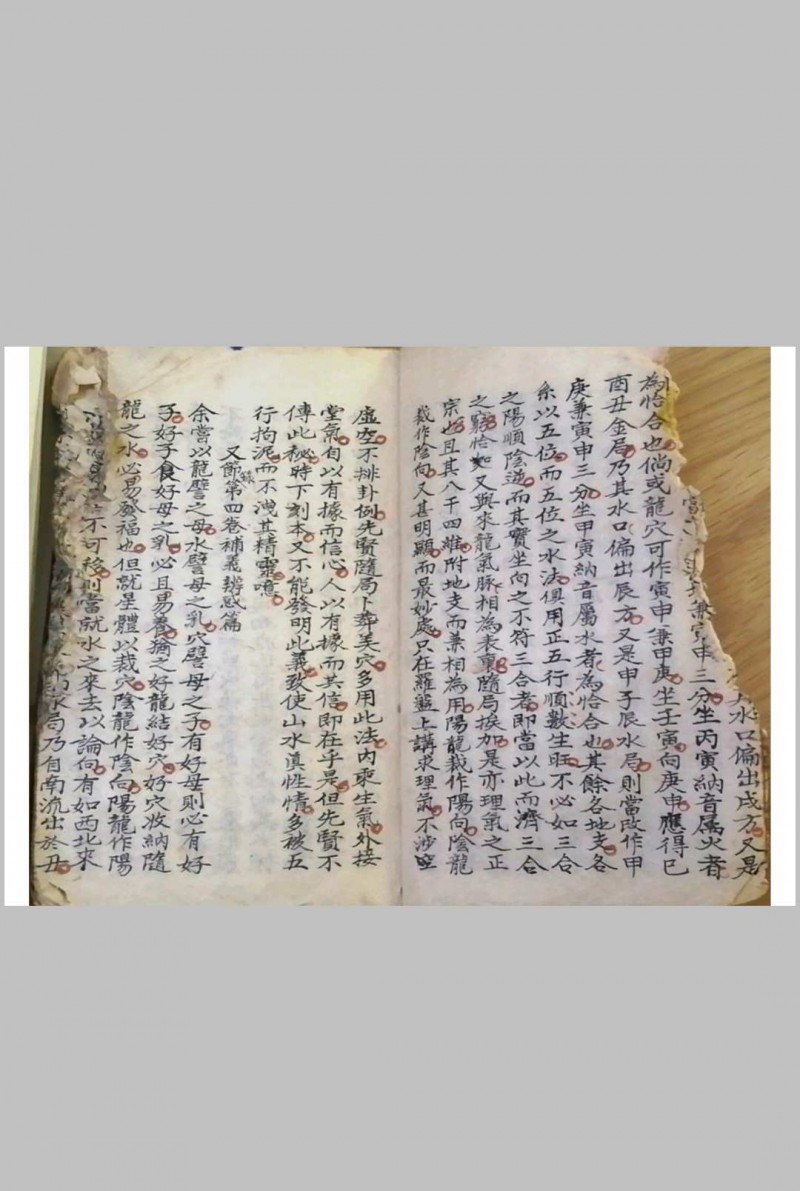 水口偏出戌方又是
兼寅申三分坐丙寅納音屬火者
為恰合也倘或龍穴可作寅申兼甲庚坐壬寅向庚申應得巳
酉丑金局乃其水口偏出辰方又是申子辰水局則當改作甲
庚兼寅申三分坐甲寅納音屬水者為恰合也其餘各地支各
系以五位而五位之水法俱用正五行順數生旺不必如三合
之陽順陰逆而其實坐向之不符三合者即當以此而濟三合
之窮恰如又與來龍氣脉相為表裏隨局挨加是亦理氣之正
宗也且其八干四維附地支而兼相為用陽龍裁作陽向陰龍
裁作陰向又甚明顯而最妙處只在羅盤上講求理氣不涉空
虛空不排卦例先賢隨局卜葬美穴多用此法内乘生氣外接
堂氣自以有據而信心人以有據而其信即在乎是但先賢不
傳此秘時下刻本又不能發明此義致使山水眞性情多被五
行拘泥而不洩其精靈噫
又節錄第四卷補義辨惑篇
余嘗以龍譬之母水譬母之乳穴譬母之子有好母則必有好
子好子食好母之乳必且易養猶之好龍結好穴好穴收納隨
龍之水必易發福也但就星體以裁穴陰龍作陰向陽龍作陽
不可移則當就水之來去以論向有如西北來
局乃自南流出於丑